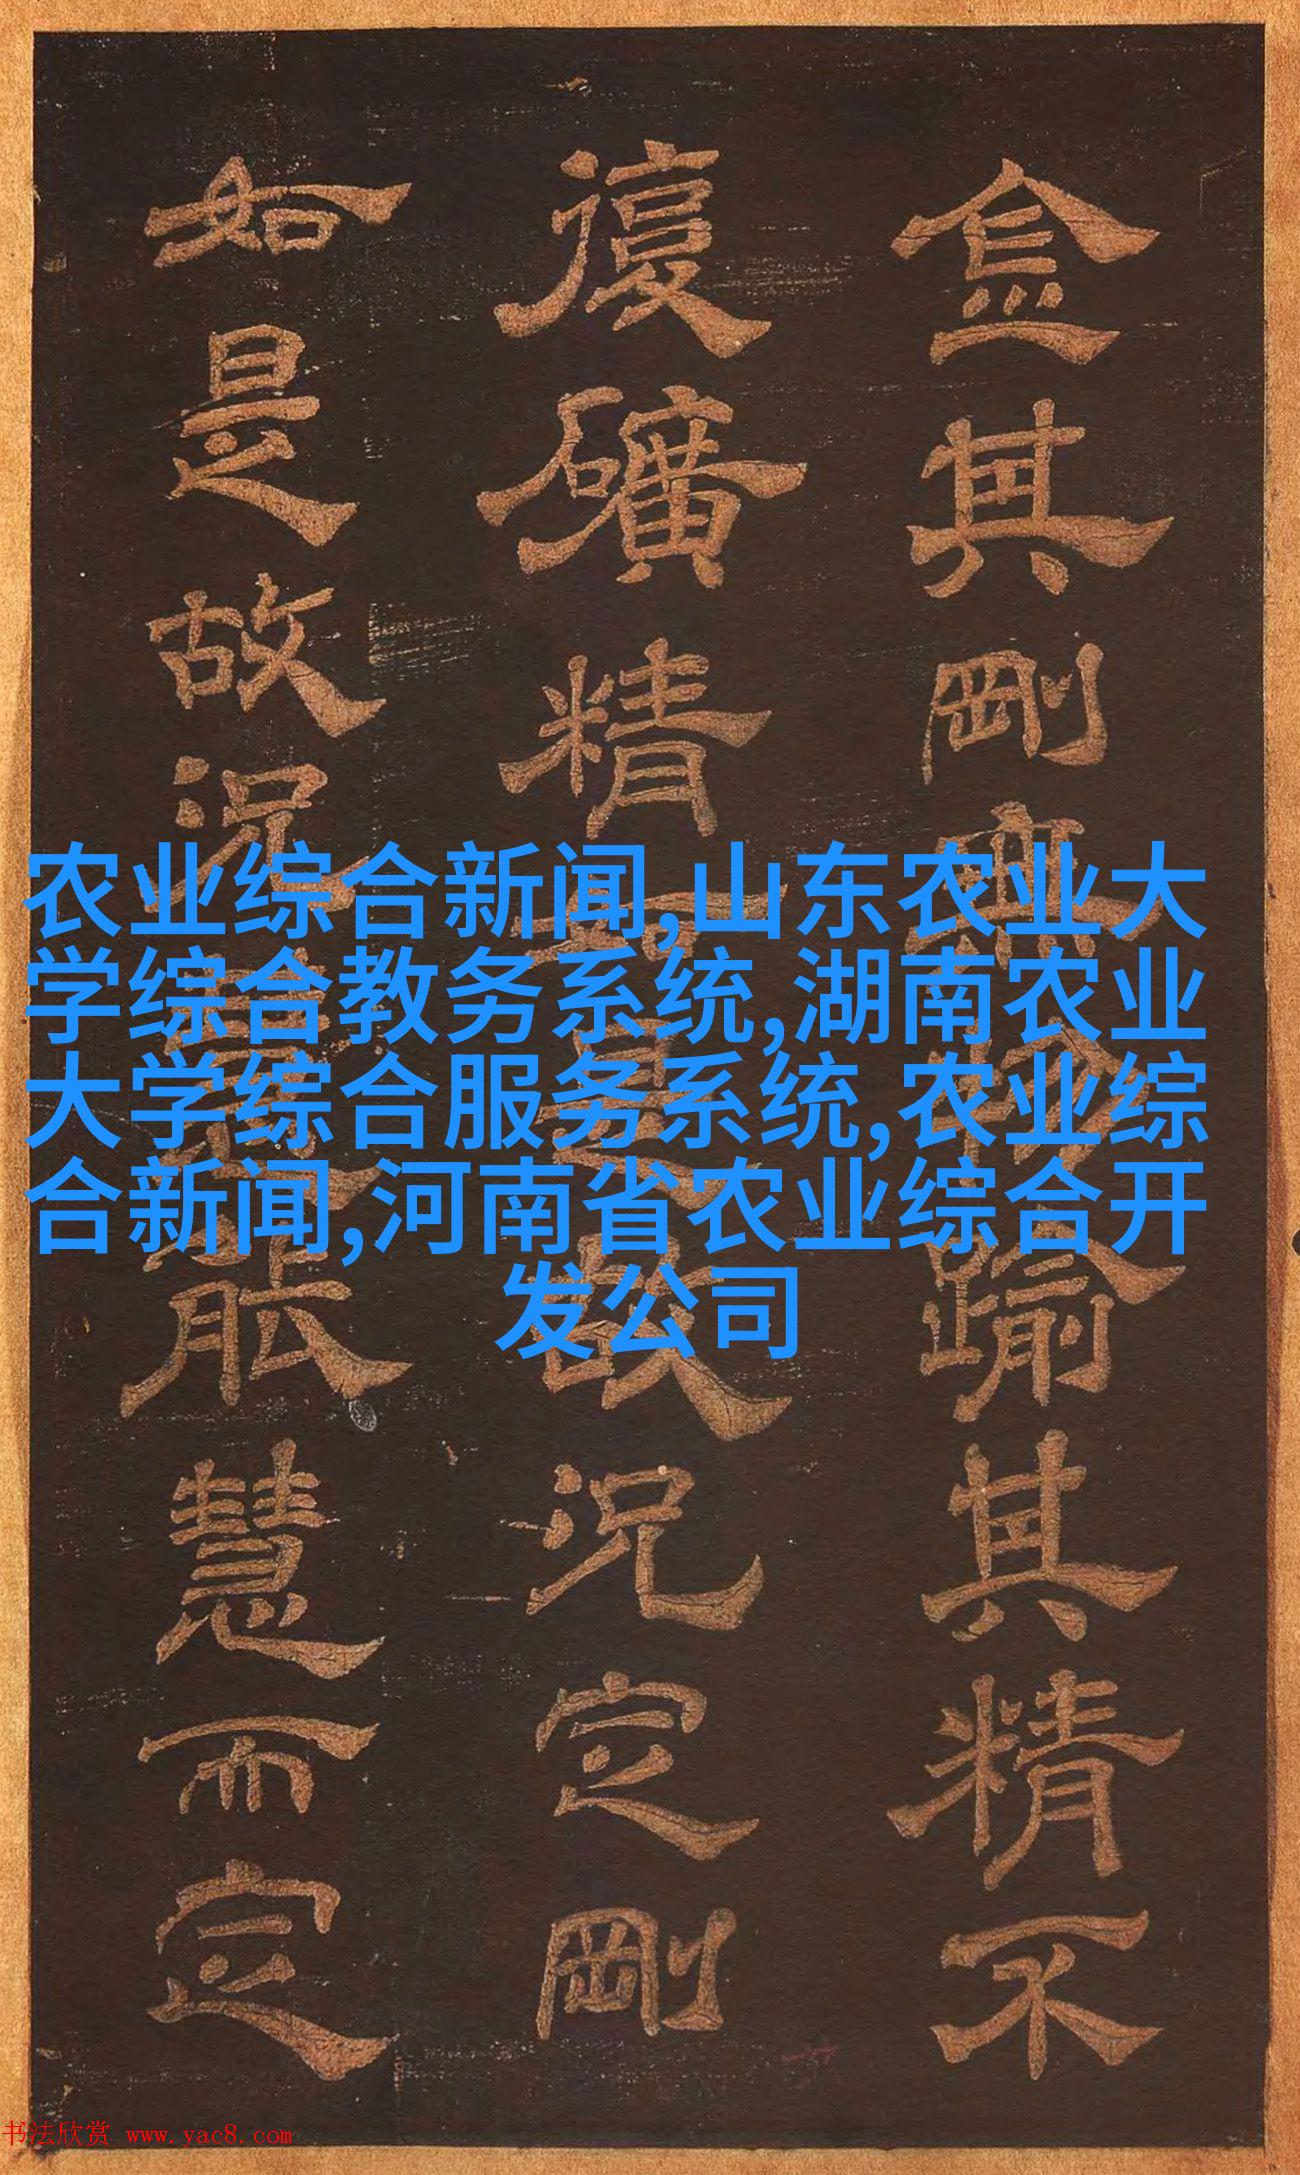 金其剛無踰其精不
復礦精故況定剛
如是故況慧而定
农业综合新闻,山东农业大
学综合教务系统,湖南农业
大学综合服务系统,农业综
合新闻,河南省农业综合开
发公司
书法欣赏 www.yac8.com